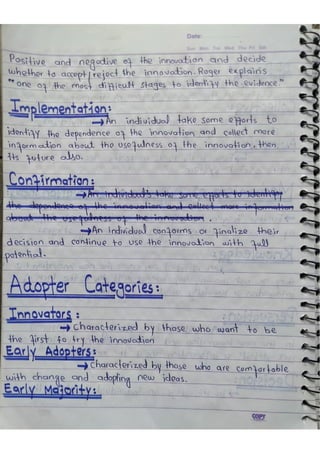 Date:
Sun Mon Tue Wed Thu Fri Sat
Positive and negative of the innovation and decide
whether to accept/reject the innovation. Roger explains
"one of the most difficult stages to identify the evidence"
Implementation:
→An individual take some efforts to
identify the dependence of the innovation and collect more
information about the usefulness of the innovation, then
its future also.
Confirmation:
→An individual's take some efforts to identify
the dependence of the innovation and collect more information
about the usefulness of the innovation.
→An individual conforms or finalize their
decision and continue to use the innovation with full
potential.
Adopter Categories:
Innovators:
→Characterized by those who want to be
the first to try the innovation
Early Adopters:
→Characterized by those who are comfortable
with change and adopting new ideas.
Early Majority:
COPY